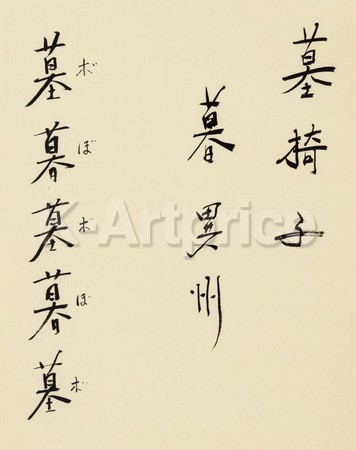 墓椅子
暮異州
墓暮墓暮墓
ボぼボぼボ
K-Artprice